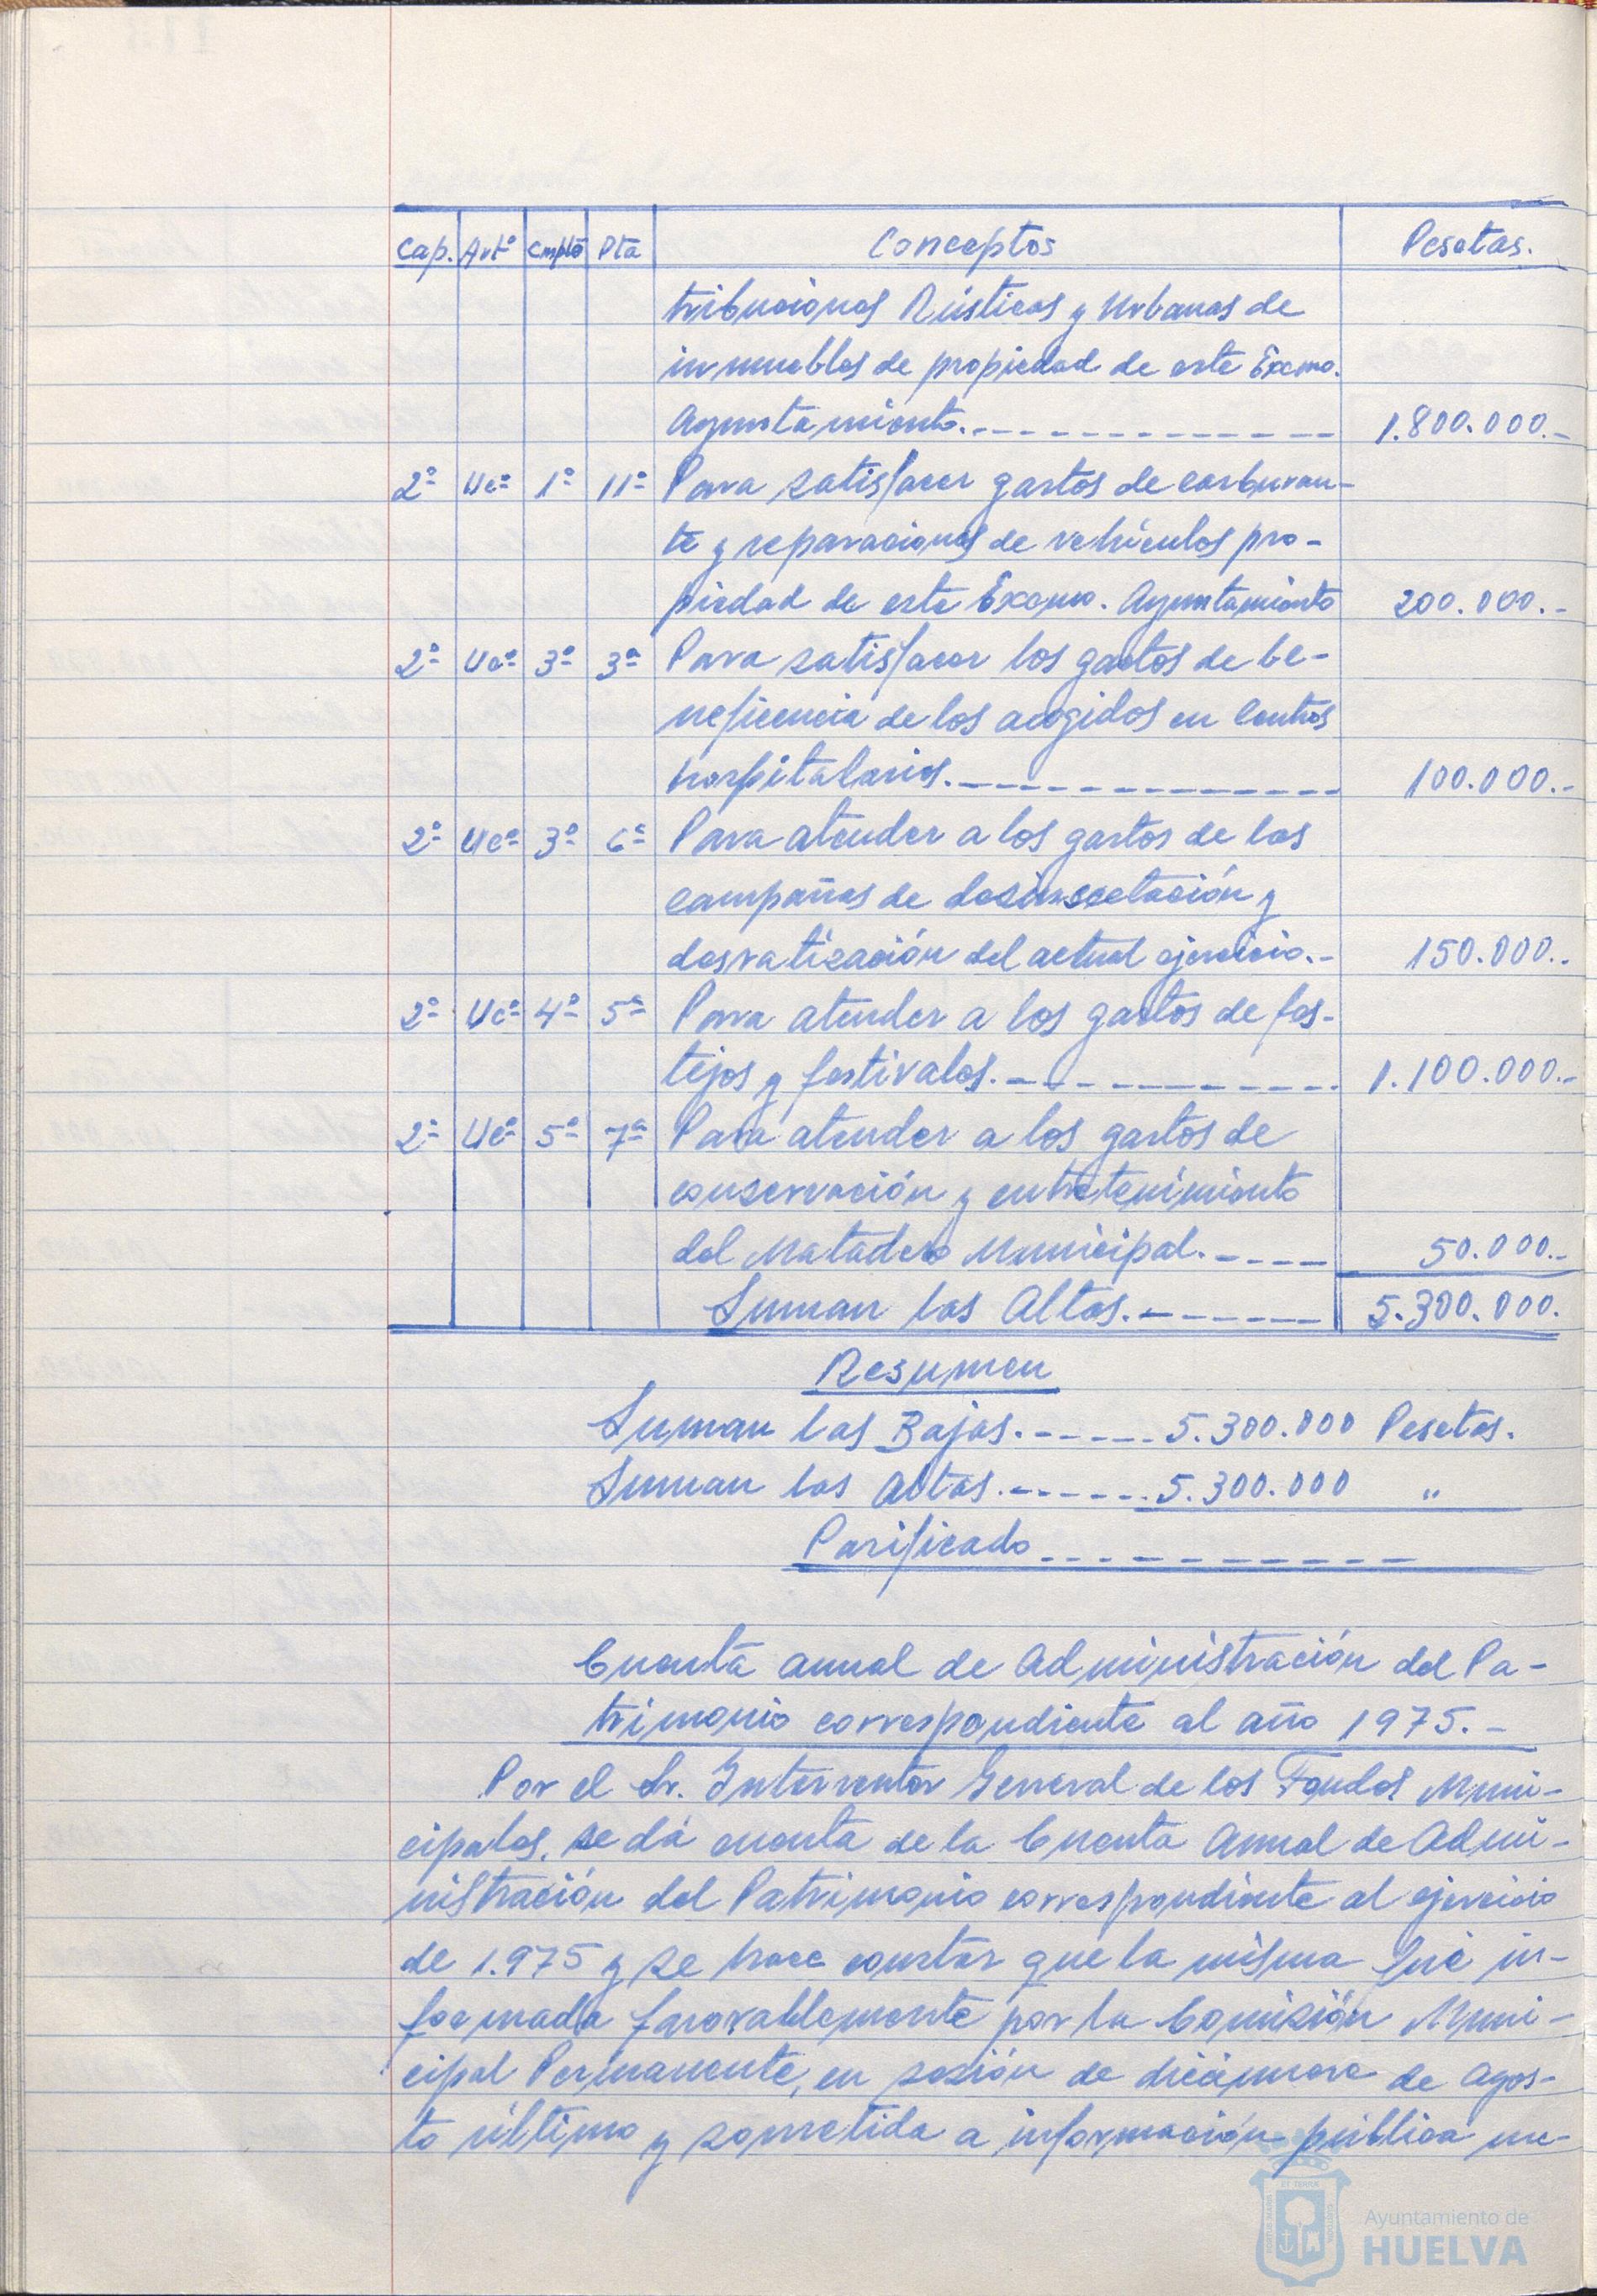 Cap. Artº Cmptº Pta Conceptos Pesetas.
tribuciones Rústicas y Urbanas de
inmuebles de propiedad de este Excmo.
Ayuntamiento.------------- 1.800.000.-
2º Ucº 1º 11ª Para satisfacer gastos de carburan-
te y reparaciones de vehículos pro-
piedad de este Excmo. Ayuntamiento 200.000.-
2º Ucº 3º 3ª Para satisfacer los gastos de be-
neficencia de los acogidos en Centros
hospitalarios.------------- 100.000.-
2º Ucº 3º 6ª Para atender a los gastos de las
campañas de desinsectación y
desratización del actual ejercicio.- 150.000.-
2º Ucº 4º 5ª Para atender a los gastos de fes-
tejos y festivales.------------ 1.100.000.-
2º Ucº 5º 7ª Para atender a los gastos de
conservación y entretenimiento
del Matadero Municipal.----- 50.000.-
Suman las Altas.------- 5.300.000.
Resumen
Suman las Bajas.------5.300.000 Pesetas.
Suman las Altas.------5.300.000 "
Parificado------------
Cuenta anual de Administración del Pa-
trimonio correspondiente al año 1975.-
Por el Sr. Interventor General de los Fondos Muni-
cipales, se dá cuenta de la Cuenta Anual de Admi-
nistración del Patrimonio correspondiente al ejercicio
de 1.975 y se hace constar que la misma fué in-
formada favorablemente por la Comisión Muni-
cipal Permanente, en sesión de diecinueve de Agos-
to último y sometida a información pública me-
Ayuntamiento de
HUELVA